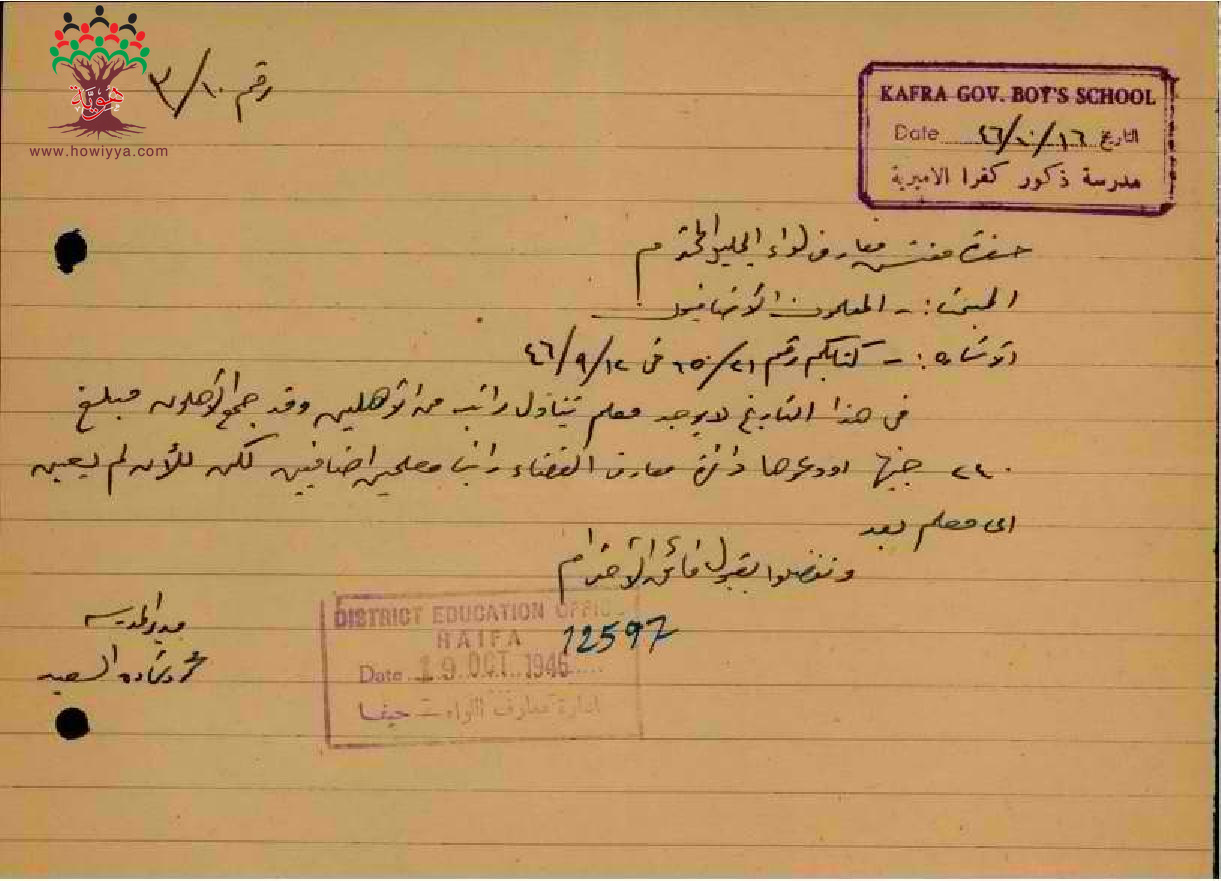 هوية
www.howiyya.com
رقم ٣/١٠
KAFRA GOV. BOY'S SCHOOL
Date ٤٦/١٠/١٦ التاريخ
مدرسة ذكور كفرا الاميرية
حضرة مفتش معارف لواء الجليل المحترم
المبحث :- المعلمون الأضافيون
الاشارة :- كتابكم رقم ٢١/ في ٤٦/٩/١٢
في هذا التاريخ لا يوجد معلم يتناول راتب من الأهلين وقد جمع الأهلون مبلغ
٢٤٠ جنيها اودعوها دائرة معارف القضاء راتب معلمين اضافيين لكن للأن لم يعين
اى معلم بعد
وتفضلوا بقبول فائق الأحترام
مدير المدرسه
السعيد
DISTRICT EDUCATION OFFICE
HAIFA
12597
Date 19 OCT 1946
ادارة معارف اللواء - حيفا